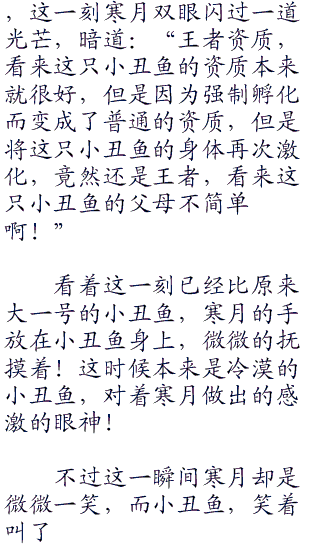 ，这一刻寒月双眼闪过一道
光芒，暗道：“王者资质，
看来这只小丑鱼的资质本来
就很好，但是因为强制孵化
而变成了普通的资质，但是
将这只小丑鱼的身体再次激
化，竟然还是王者，看来这
只小丑鱼的父母不简单
啊！”
看着这一刻已经比原来
大一号的小丑鱼，寒月的手
放在小丑鱼身上，微微的抚
摸着！这时候本来是冷漠的
小丑鱼，对着寒月做出的感
激的眼神！
不过这一瞬间寒月却是
微微一笑，而小丑鱼，笑着
叫了